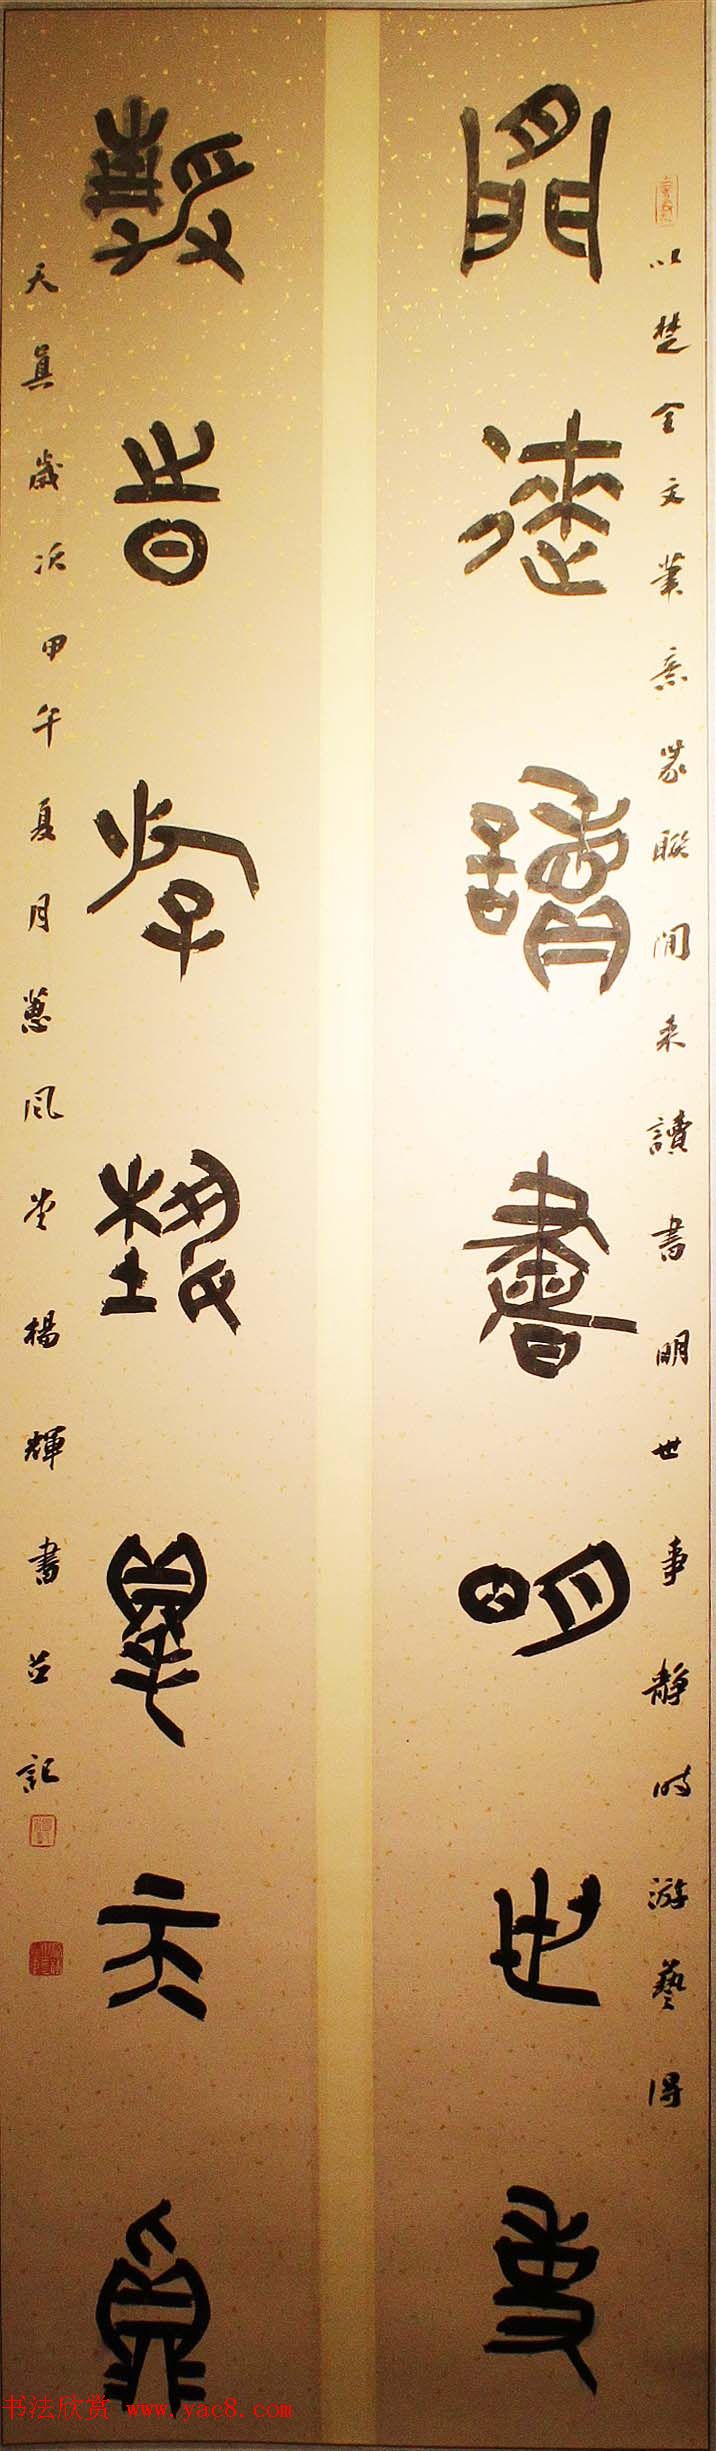 以楚金文業意篆聯閒來讀書明世事靜時游藝得
閒來讀書明世事
靜時游藝得天真
天真歲次甲午夏月蕙風堂楊輝書並記
书法欣赏 www.yac8.com